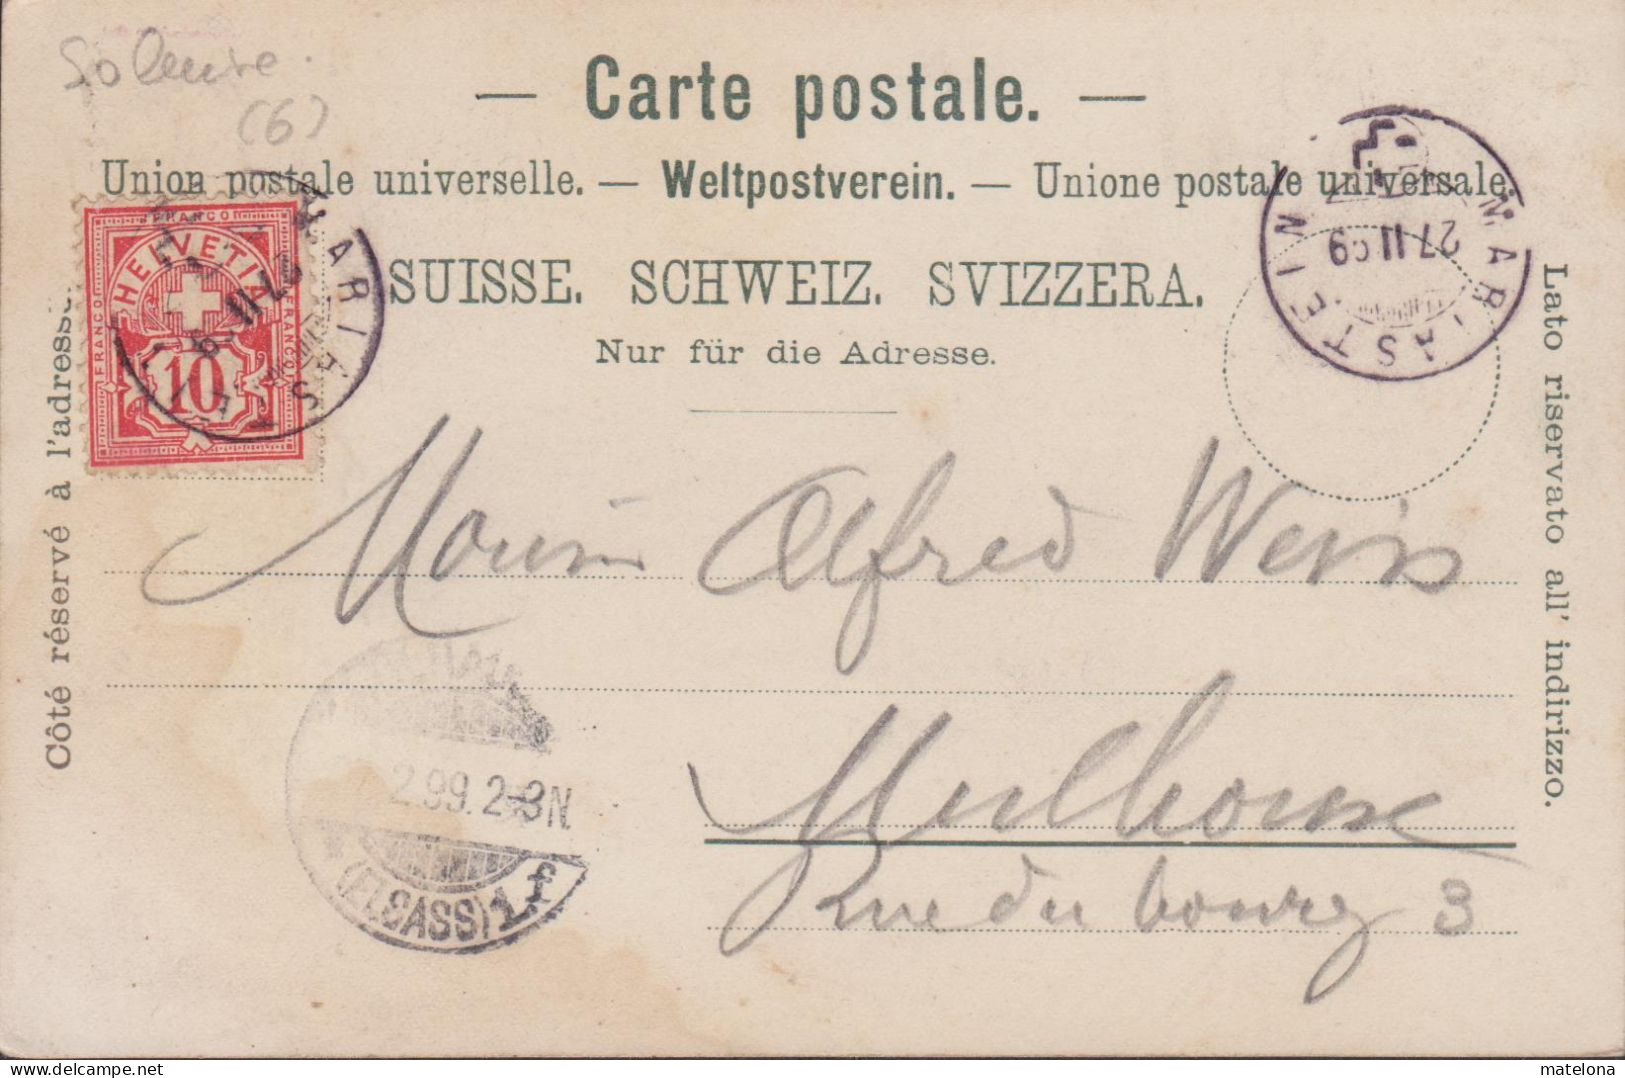 Soleure.
(6)
— Carte postale. —
Union postale universelle. — Weltpostverein. — Unione postale universale.
SUISSE. SCHWEIZ. SVIZZERA.
Nur für die Adresse.
Côté réservé à l'adresse.
Lato riservato all' indirizzo.
FRANCO
HELVETIA
FRANCO
FRANCO
10
MARIASTEIN
MARIASTEIN
27 II 99
Monsieur Alfred Weiss
Mulhouse
Rue du bourg 3
2.99. 2-3N.
(ELSASS) 1.f
matelona